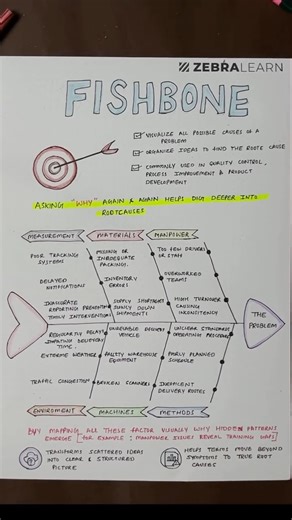 ZEBRALEARN
FISHBONE
VISUALIZE ALL POSSIBLE CAUSES OF A
PROBLEM
ORGANIZE IDEAS TO FIND THE ROOT CAUSE
COMMONLY USED IN QUALITY CONTROL,
PROCESS IMPROVEMENT & PRODUCT
DEVELOPMENT
ASKING "WHY" AGAIN & AGAIN HELPS DIG DEEPER INTO
ROOTCAUSES
MEASUREMENT
MATERIALS
MANPOWER
POOR TRACKING
SYSTEMS
MISSING OR
INADEQUATE
PACKING.
TOO FEW DRIVERS
OR STAFF
DELAYED
NOTIFICATIONS
INVENTORY
ERRORS
OVERWORKED
TEAMS
INACCURATE
REPORTING PREVENTING
TIMELY INTERVENTION
SUPPLY SHORTAGES
SLOWLY DOWN
SHIPMENTS
HIGH TURNOVER
CAUSING
INCONSISTENCY
THE
PROBLEM
REGULARLY DELAY
DELIVERY
TIME.
UNRELIABLE DELIVERY
VEHICLE
UNCLEAR STANDARD
OPERATING PROCEDURE
EXTREME WEATHER
FAULTY WAREHOUSE
EQUIPMENT
PLANNED
SCHEDULE
TRAFFIC CONGESTION
BROKEN SCANNERS
INEFFICIENT
DELIVERY ROUTES
ENVIROMENT
MACHINES
METHODS
BY MAPPING ALL THESE FACTOR VISUALLY WHY HIDDEN PATTERNS
EMERGE [FOR EXAMPLE: MANPOWER ISSUES REVEAL TRAINING GAPS]
TRANSFORMS SCATTERED IDEAS
INTO CLEAR & STRUCTURED
PICTURE
HELPS TEAMS MOVE BEYOND
SYMPTOMS TO TRUE ROOT
CAUSES